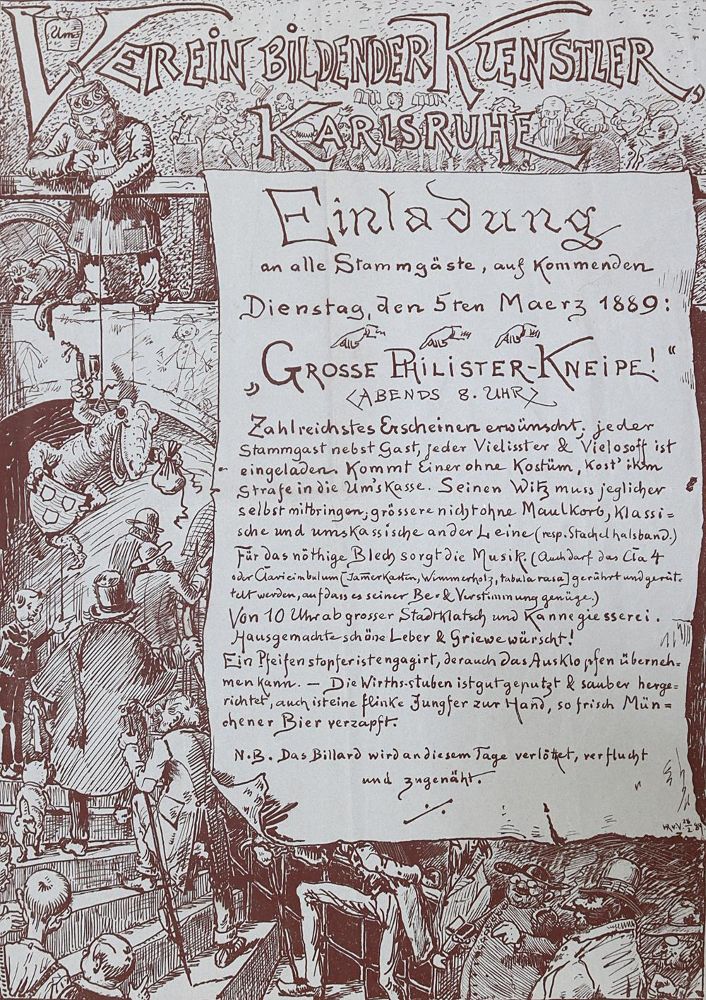 Ums
VEREIN BILDENDER KUENSTLER,
KARLSRUHE
Einladung
an alle Stammgäste, auf kommenden
Dienstag, den 5ten Maerz 1889:
„GROSSE PHILISTER-KNEIPE!“
<ABENDS 8. UHR>
Zahlreichstes Erscheinen erwünscht; jeder
Stammgast nebst Gast, jeder Vielisster & Vielosoff ist
eingeladen. Kommt Einer ohne Kostüm, Kost' ihm
Strafe in die Um's Kasse. Seinen Witz muss jeglicher
selbst mitbringen, grössere nicht ohne Maulkorb, Klassi=
sche und umskassische an der Leine (resp. Stachelhalsband.)
Für das nöthige Blech sorgt die Musik. (Auch darf das Cla 4
oder Clavicimbulum [Jamerkasten, Wimmerholz, tabula rasa] gerührt und gerüt=
telt werden, auf dass es seiner Be & Verstimmung genüge.)
Von 10 Uhr ab grosser Stadtklatsch und Kannegiesserei.
Hausgemachte schöne Leber & Griewewürscht!
Ein Pfeifenstopfer ist engagirt, der auch das Ausklopfen überneh=
men kann. — Die Wirths-stuben ist gut geputzt & sauber herge=
richtet, auch ist eine flinke Jungfer zur Hand, so frisch Mün=
chener Bier verzapft.
N.B. Das Billard wird an diesem Tage verlöttet, verflucht
und zugenäht.